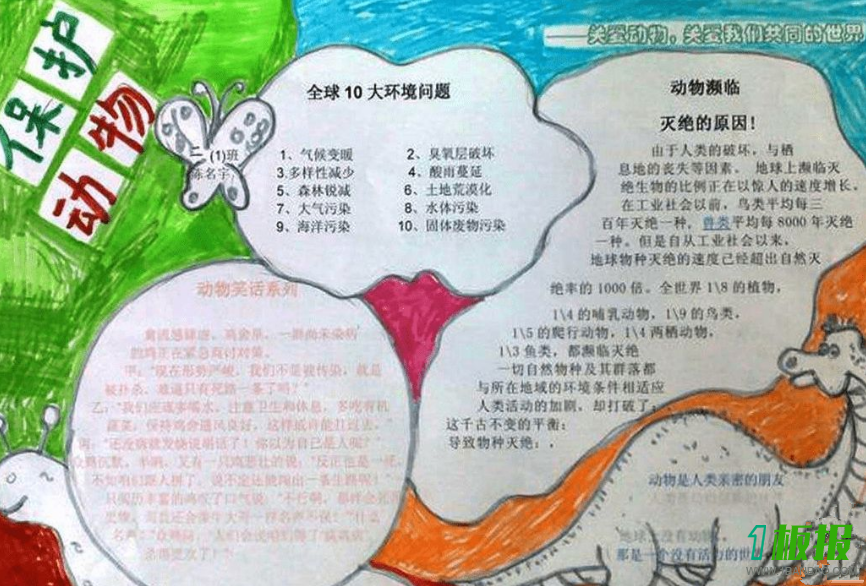 ——关爱动物，关爱我们共同的世界
保护
动物
二 (1)班
陈名宇
全球 10 大环境问题
1、气候变暖 2、臭氧层破坏
3.多样性减少 4、酸雨蔓延
5、森林锐减 6、土地荒漠化
7、大气污染 8、水体污染
9、海洋污染 10、固体废物污染
动物濒临
灭绝的原因！
由于人类的破坏，与栖
息地的丧失等因素， 地球上濒临灭
绝生物的比例正在以惊人的速度增长。
在工业社会以前，鸟类平均每三
百年灭绝一种，兽类平均每 8000 年灭绝
一种。但是自从工业社会以来，
地球物种灭绝的速度已经超出自然灭
绝率的 1000 倍。全世界 1\8 的植物，
1\4 的哺乳动物，1\9 的鸟类，
1\5 的爬行动物，1\4 两栖动物，
1\3 鱼类，都濒临灭绝
一切自然物种及其群落都
与所在地域的环境条件相适应
人类活动的加剧，却打破了
这千古不变的平衡：
导致物种灭绝：，
动物笑话系列
禽流感肆虐，鸡舍里，一群尚未染病
的鸡正在紧急商讨对策。
甲：“现在形势严峻，我们不是被传染，就是
被扑杀，难道只有死路一条了吗？”
乙：“我们应该多喝水，注意卫生和休息，多吃有机
蔬菜，保持鸡舍通风良好，这样或许能扛过去。”
丙：“还没病就发烧说胡话了！你以为自己是人呢？”
众鸡沉默，半晌，又有一只鸡悲壮的说：“反正也是一死，
动物是人类亲密的朋友
地球上没有动物
那是一个没有活力的世
1板报